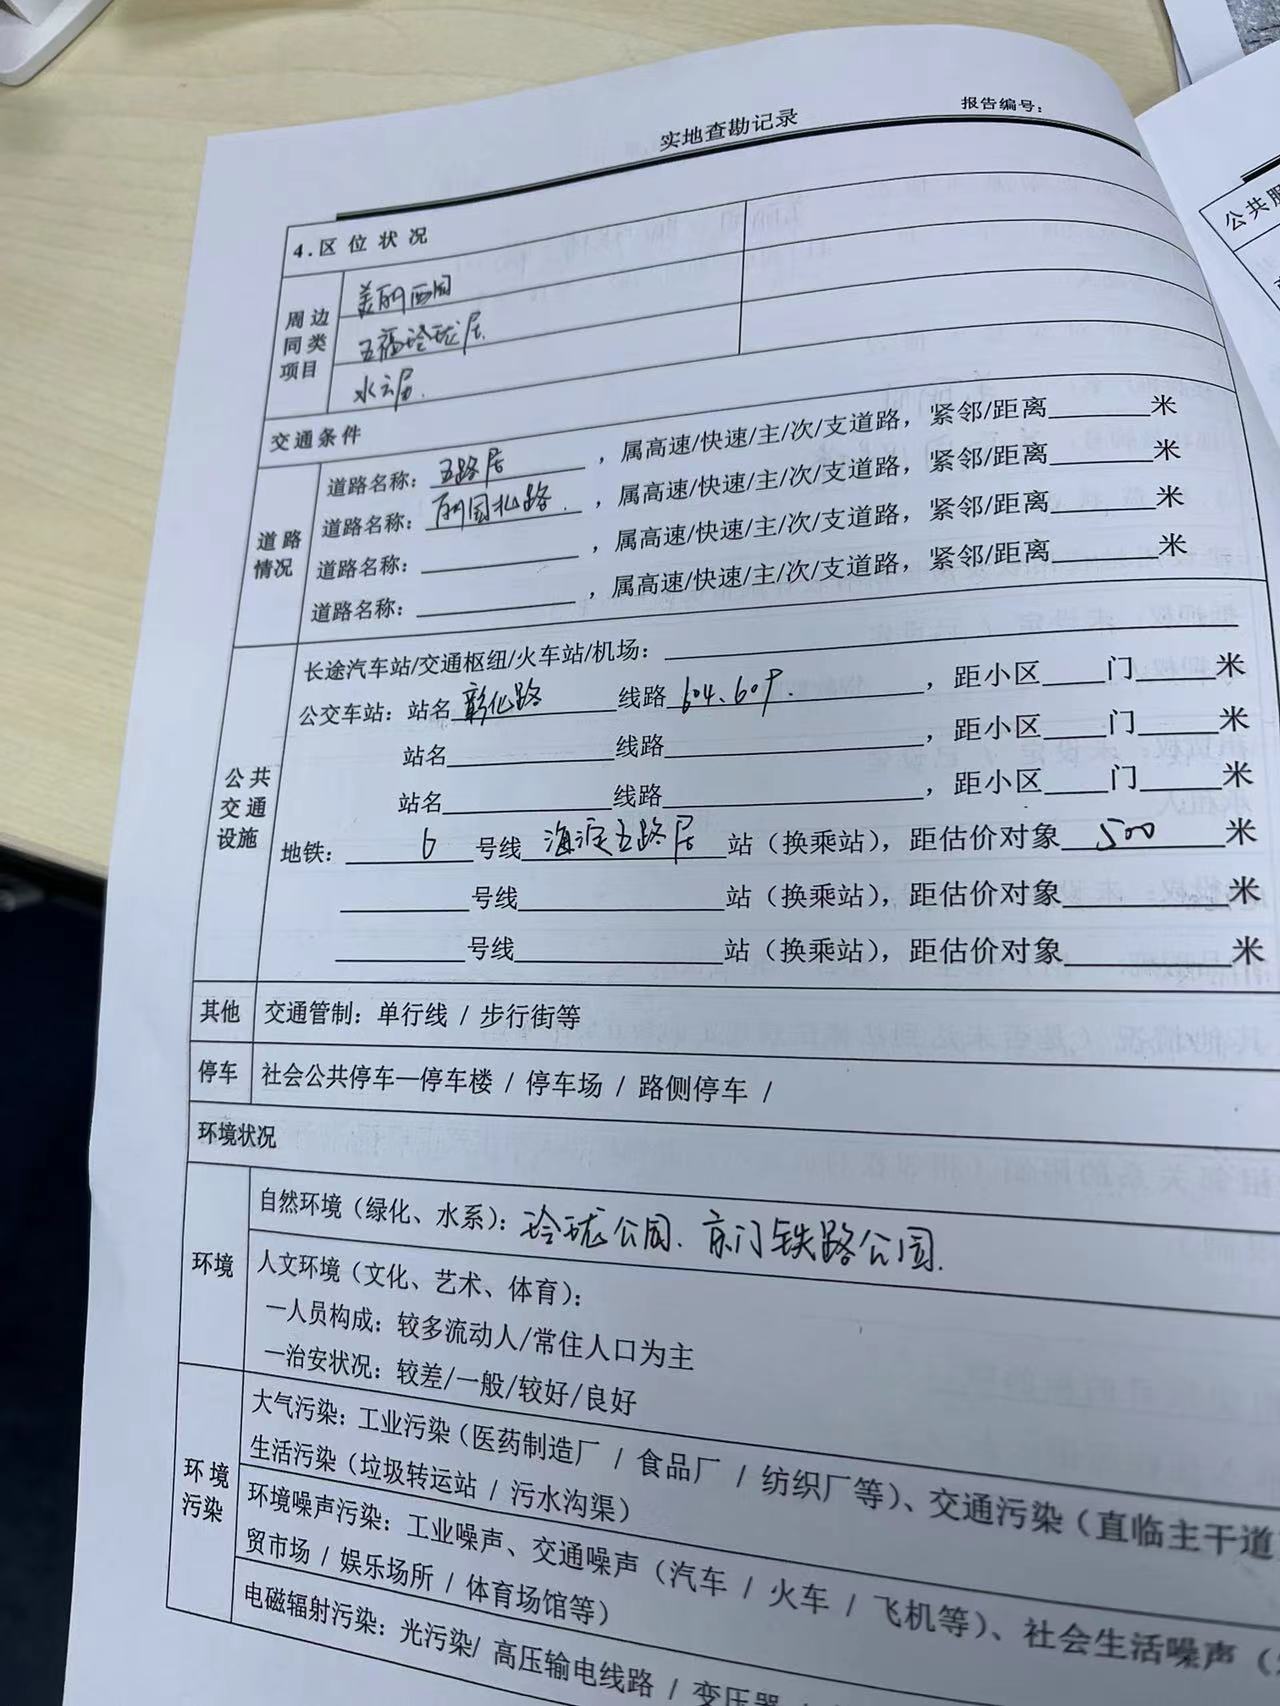 实地查勘记录
报告编号:
4.区位状况
周边同类项目
美丽西园
五福玲珑居
水云居.
交通条件
道路情况
道路名称: 五路居 ,属高速/快速/主/次/支道路,紧邻/距离____米
道路名称: 丽园北路. ,属高速/快速/主/次/支道路,紧邻/距离____米
道路名称: ____ ,属高速/快速/主/次/支道路,紧邻/距离____米
道路名称: ____ ,属高速/快速/主/次/支道路,紧邻/距离____米
公共交通设施
长途汽车站/交通枢纽/火车站/机场: ____
公交车站: 站名 彰化路 线路 604、609. ,距小区____门____米
站名____线路____,距小区____门____米
站名____线路____,距小区____门____米
地铁: 6 号线 海淀五路居 站(换乘站),距估价对象 500 米
____号线____站(换乘站),距估价对象____米
____号线____站(换乘站),距估价对象____米
其他 交通管制: 单行线 / 步行街等
停车 社会公共停车—停车楼 / 停车场 / 路侧停车 /
环境状况
环境
自然环境(绿化、水系): 玲珑公园、京门铁路公园.
人文环境(文化、艺术、体育):
—人员构成: 较多流动人/常住人口为主
—治安状况: 较差/一般/较好/良好
环境污染
大气污染: 工业污染(医药制造厂 / 食品厂 / 纺织厂等)、交通污染(直临主干道
生活污染(垃圾转运站 / 污水沟渠)
环境噪声污染: 工业噪声、交通噪声(汽车 / 火车 / 飞机等)、社会生活噪声(
贸市场 / 娱乐场所 / 体育场馆等)
电磁辐射污染: 光污染/ 高压输电线路 / 变压器 /
公共服